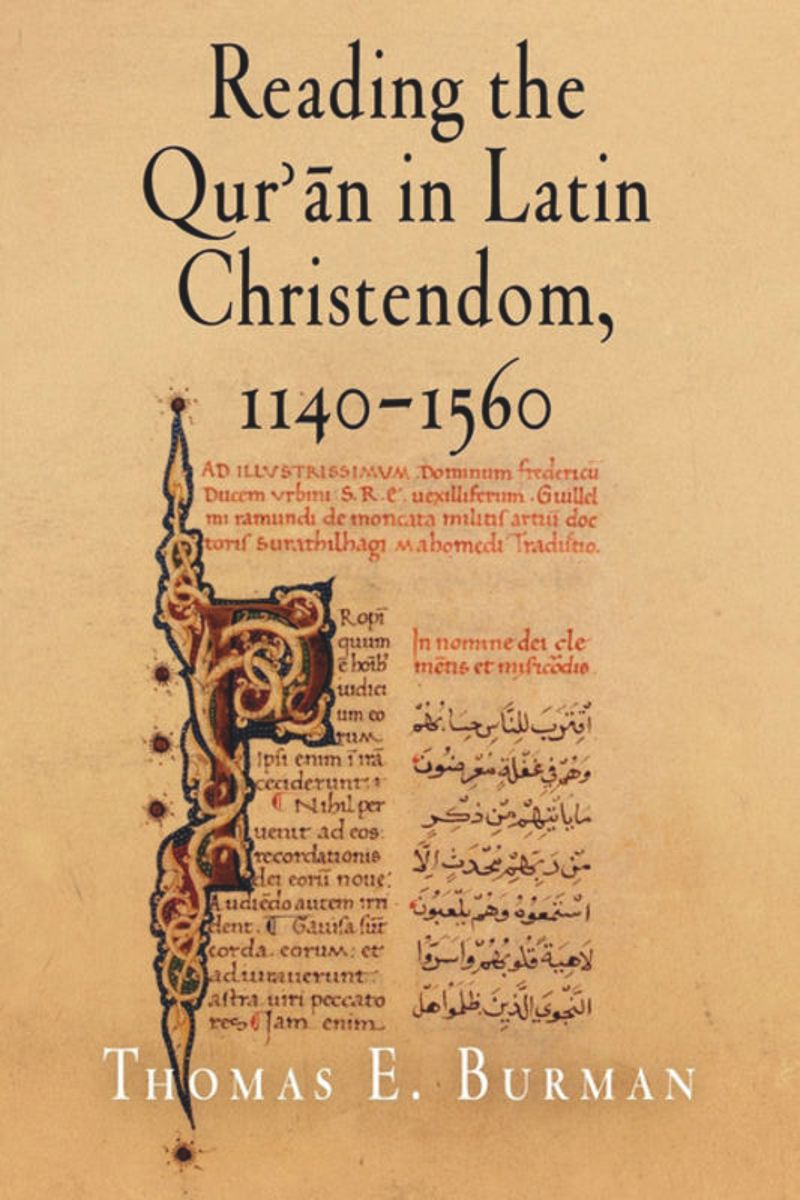 Reading the
Qurʾān in Latin
Christendom,
1140–1560
AD ILLVSTRISSIMVM Dominum fredericū
Ducem vrbini S. R. E. uexilliferum. Guillel
mi ramundi de moncata militis artiū doc
toris Surathilhagi Mahomedi Traditio.
P Ropī
quum
ē hoīb'
iudici
um eo
rum
Ipsi enim ī irā
ceciderunt:
Nihil per
uenit ad eos
recordationis
dei eorū noue:
Audiēdo autem irri
dent. Gauisa sūt
corda eorum: et
adiurauerunt
astra uiri peccato
res Jam enim
In nomine dei cle
mētis et misicōdis
اقْتَرَبَ لِلنَّاسِ حِسَابُهُمْ
وَهُمْ فِي غَفْلَةٍ مُعْرِضُونَ
مَا يَأْتِيهِمْ مِنْ ذِكْرٍ
مِنْ رَبِّهِمْ مُحْدَثٍ إِلَّا
اسْتَمَعُوهُ وَهُمْ يَلْعَبُونَ
لَاهِيَةً قُلُوبُهُمْ وَأَسَرُّوا
النَّجْوَى الَّذِينَ ظَلَمُوا هَلْ
THOMAS E. BURMAN